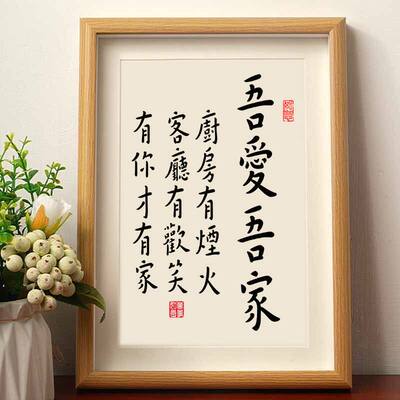 吾愛吾家
廚房有煙火
客廳有歡笑
有你才有家